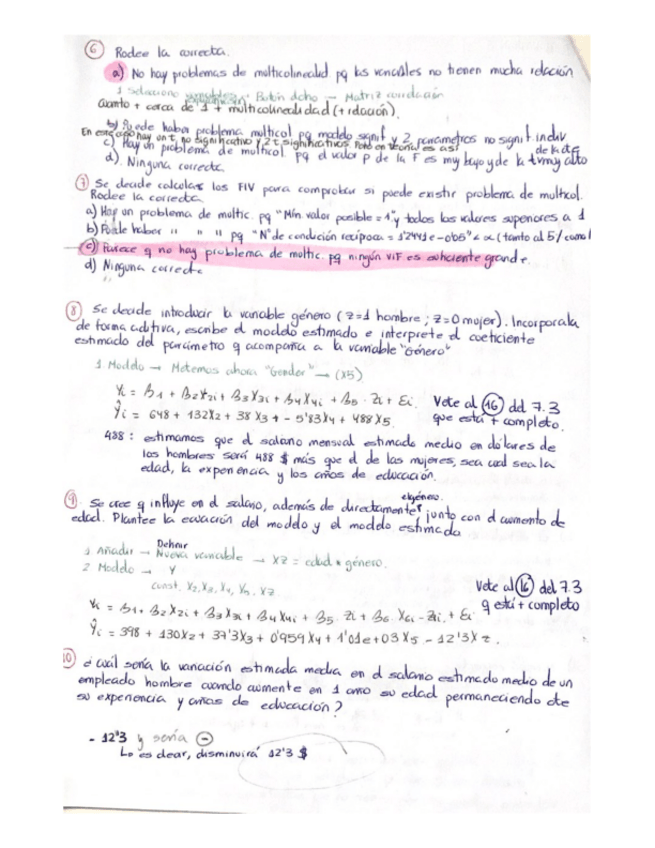 6 Rodee la correcta.
a) No hay problemas de multicolinealid pq las variables no tienen mucha relación
1 Selecciono variables Botón dcho → Matriz correlación
Cuanto + cerca de 1 + multicolinealidad (+ relación).
b) Puede haber problema multicol pq modelo signif y 2 parametros no signif indiv
En este caso hay un t, no significativo y 2 t significativos. Pero en teoría es así
c) Hay un problema de multicol. pq el valor p de la F es muy bajo y de la t muy alto
d). Ninguna correcta.
7 Se decide calcular los FIV para comprobar si puede existir problema de multicol.
Rodee la correcta
a) Hay un problema de multic. pq "Mín valor posible = 1" y todos los valores superiores a 1
b) Puede haber " " " pq "Nº de condición recíproca = 1'2441e-005" < α (tanto al 5/ como 1
c) Parece q no hay problema de multic. pq ningún VIF es suficiente grande.
d) Ninguna correcta
8 Se decide introducir la variable género (z=1 hombre ; z=0 mujer). Incorporala
de forma aditiva, escribe el modelo estimado e interprete el coeficiente
estimado del parámetro q acompaña a la variable "Género"
1 Modelo → Metemos ahora "Gender" → (X5)
Yi = β1 + β2X2i + β3X3i + β4X4i + β5 · Zi + εi.
Vete al 16 del 7.3
que está + completo.
Ŷi = 648 + 132X2 + 38 X3 + - 5'83X4 + 488X5.
488 : estimamos que el salario mensual estimado medio en dólares de
los hombres será 488 $ más que el de las mujeres, sea cual sea la
edad, la experiencia y los años de educación.
9 Se cree q influye en el salario, además de directamente el género, junto con el aumento de
edad. Plantee la ecuación del modelo y el modelo estimado
1 Añadir → Definir Nueva variable → XZ = edad * género.
2 Modelo → Y
const, X2, X3, X4, X5, XZ
Vete al 16 del 7.3
q está + completo
Yi = β1 + β2 X2i + β3 X3i + β4 X4i + β5 · Zi + β6 X4i · Zi, + εi
Ŷi = 398 + 130X2 + 37'3X3 + 0'959 X4 + 1'01e+03 X5 - 12'3X z.
10 ¿ cuál sería la variación estimada media en el salario estimado medio de un
empleado hombre cuando aumente en 1 año su edad permaneciendo cte
su experiencia y años de educación ?
- 12'3 y sería -
Lo es decir, disminuirá 12'3 $